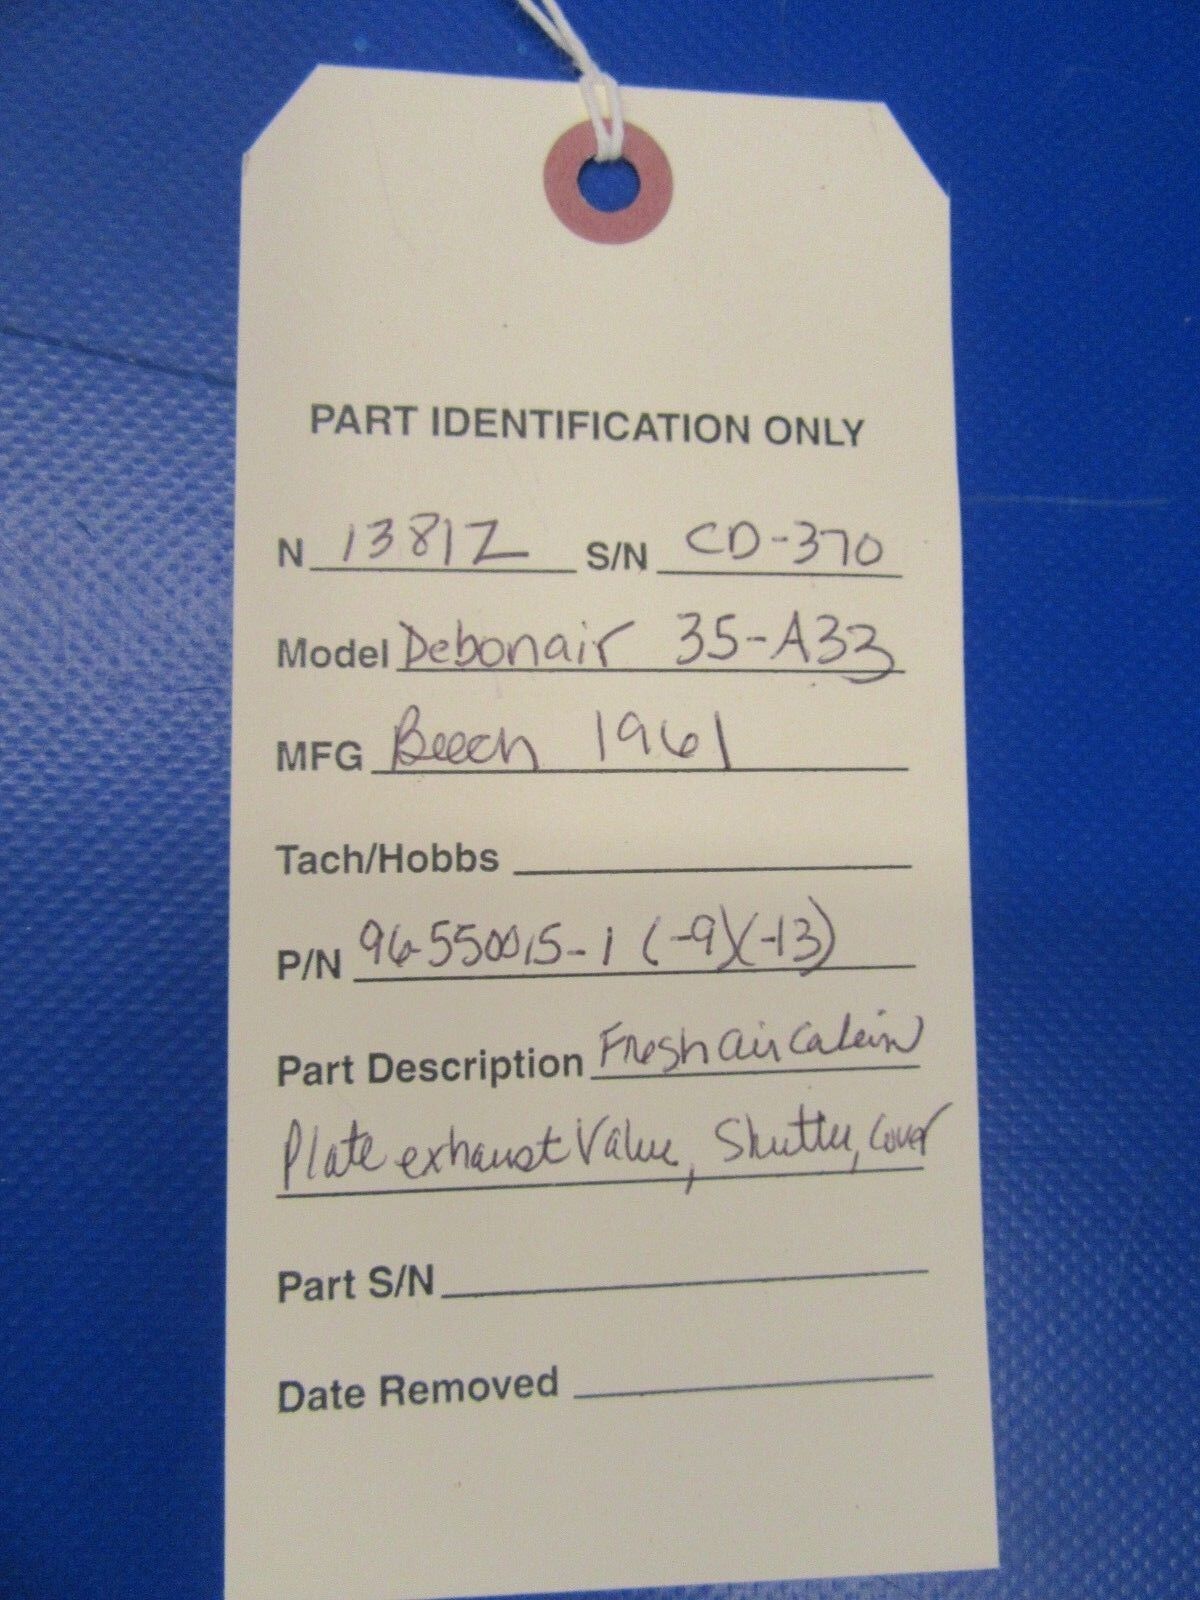 PART IDENTIFICATION ONLY
N 1381Z S/N CD-370
Model Debonair 35-A33
MFG Beech 1961
Tach/Hobbs
P/N 96-550015-1 (-9)(-13)
Part Description Fresh air Cabin
Plate exhaust Valve, Shutter, cover
Part S/N
Date Removed